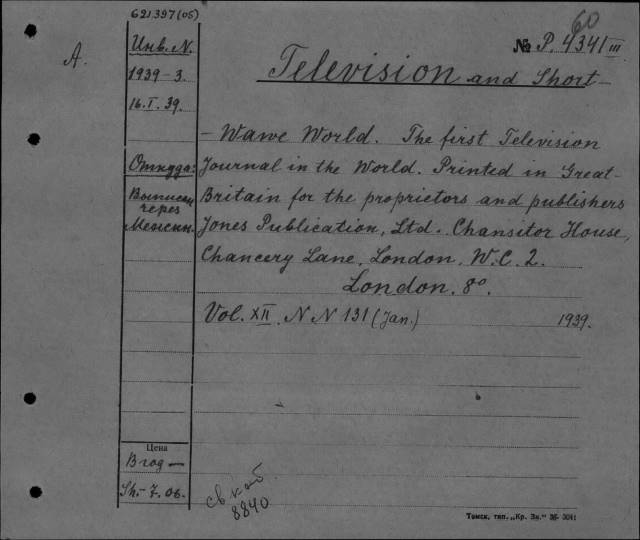 621.397(05)
60
A.
Инв. N.
№ P. 4341 III
1939-3.
Television and Short-
16. I. 39.
- Wawe World. The first Television
Откуда:
Journal in the World. Printed in Great-
Выписан
Britain for the proprietors and publishers
через
Jones Publication, Ltd. Chansitor House,
Межкн.
Chancery Lane, London, W.C. 2.
London. 8°.
Vol. XII. N N 131 (Jan.) 1939.
Цена
В год —
Sh.- 7. 06.
св каб
8840
Томск, тип. „Кр. Зн." 36- 3041